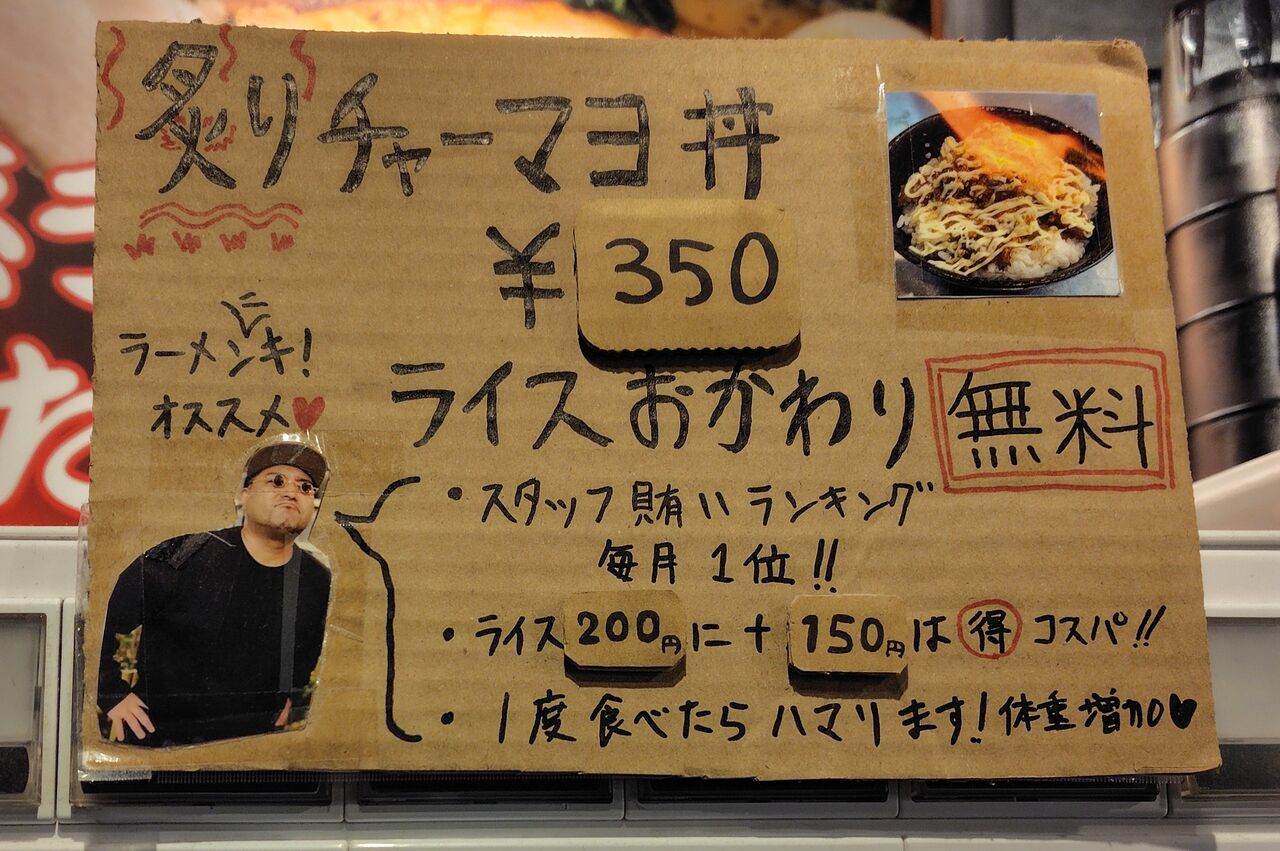 炙りチャーマヨ丼
¥350
ラーメンキ!
オススメ♥
ライスおかわり 無料
・スタッフ賄いランキング
毎月1位!!
・ライス200円に+150円は得コスパ!!
・1度食べたらハマります!体重増加♥
た